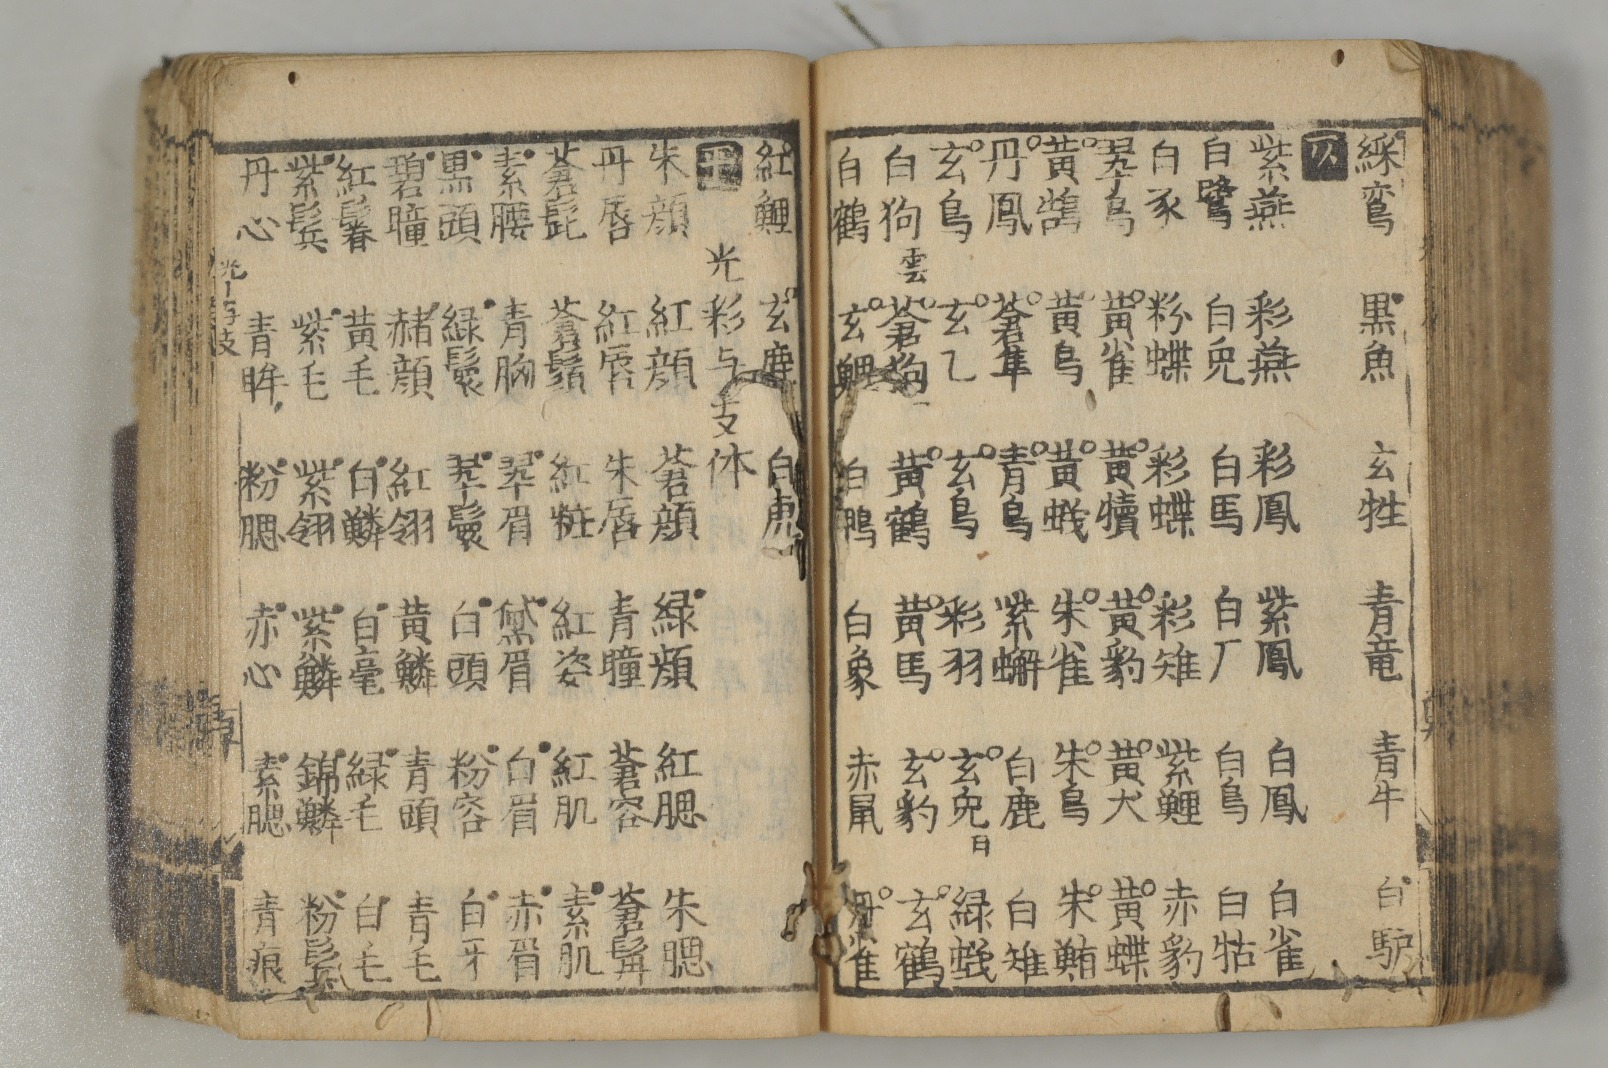 綵鸞 黒魚 玄牲 青竜 青牛 白馿
仄
紫燕 彩燕 彩鳳 紫鳳 白鳳 白雀
白鷺 白兎 白馬 白厂 白鳥 白牯
白豕 粉蝶 彩蝶 彩雉 紫鯉 赤豹
翠鳥 黄雀 黄犢 黄豹 黄犬 黄蝶
黄鵠 黄鳥 黄蛾 朱雀 朱鳥 朱鮪
丹鳳 蒼隼 青鳥 紫蠏 白鹿 白雉
玄鳥 玄乙 玄鳥 彩羽 玄兎 緑蛾
日
白狗 蒼狗 黄鶴 黄馬 玄豹 玄鶴
雲
白鶴 玄鯉 白鴨 白象 赤鼠 丹雀
紅鯉 玄鹿 白虎
平 光彩与支体
朱顔 紅顔 蒼顔 緑頬 紅腮 朱腮
丹唇 紅唇 朱唇 青瞳 蒼容 蒼髯
蒼髭 蒼鬚 紅粧 紅姿 紅肌 素肌
素腰 青胸 翠眉 黛眉 白眉 赤眉
黒頭 緑鬟 翠鬟 白頭 粉容 白牙
碧瞳 赭顔 紅翎 黄鱗 青頭 青毛
紅鬈 黄毛 白鱗 白毫 緑毛 白毛
紫鬓 紫毛 紫翎 紫鱗 錦鱗 粉鬓
丹心 青眸 粉腮 赤心 素腮 青痕